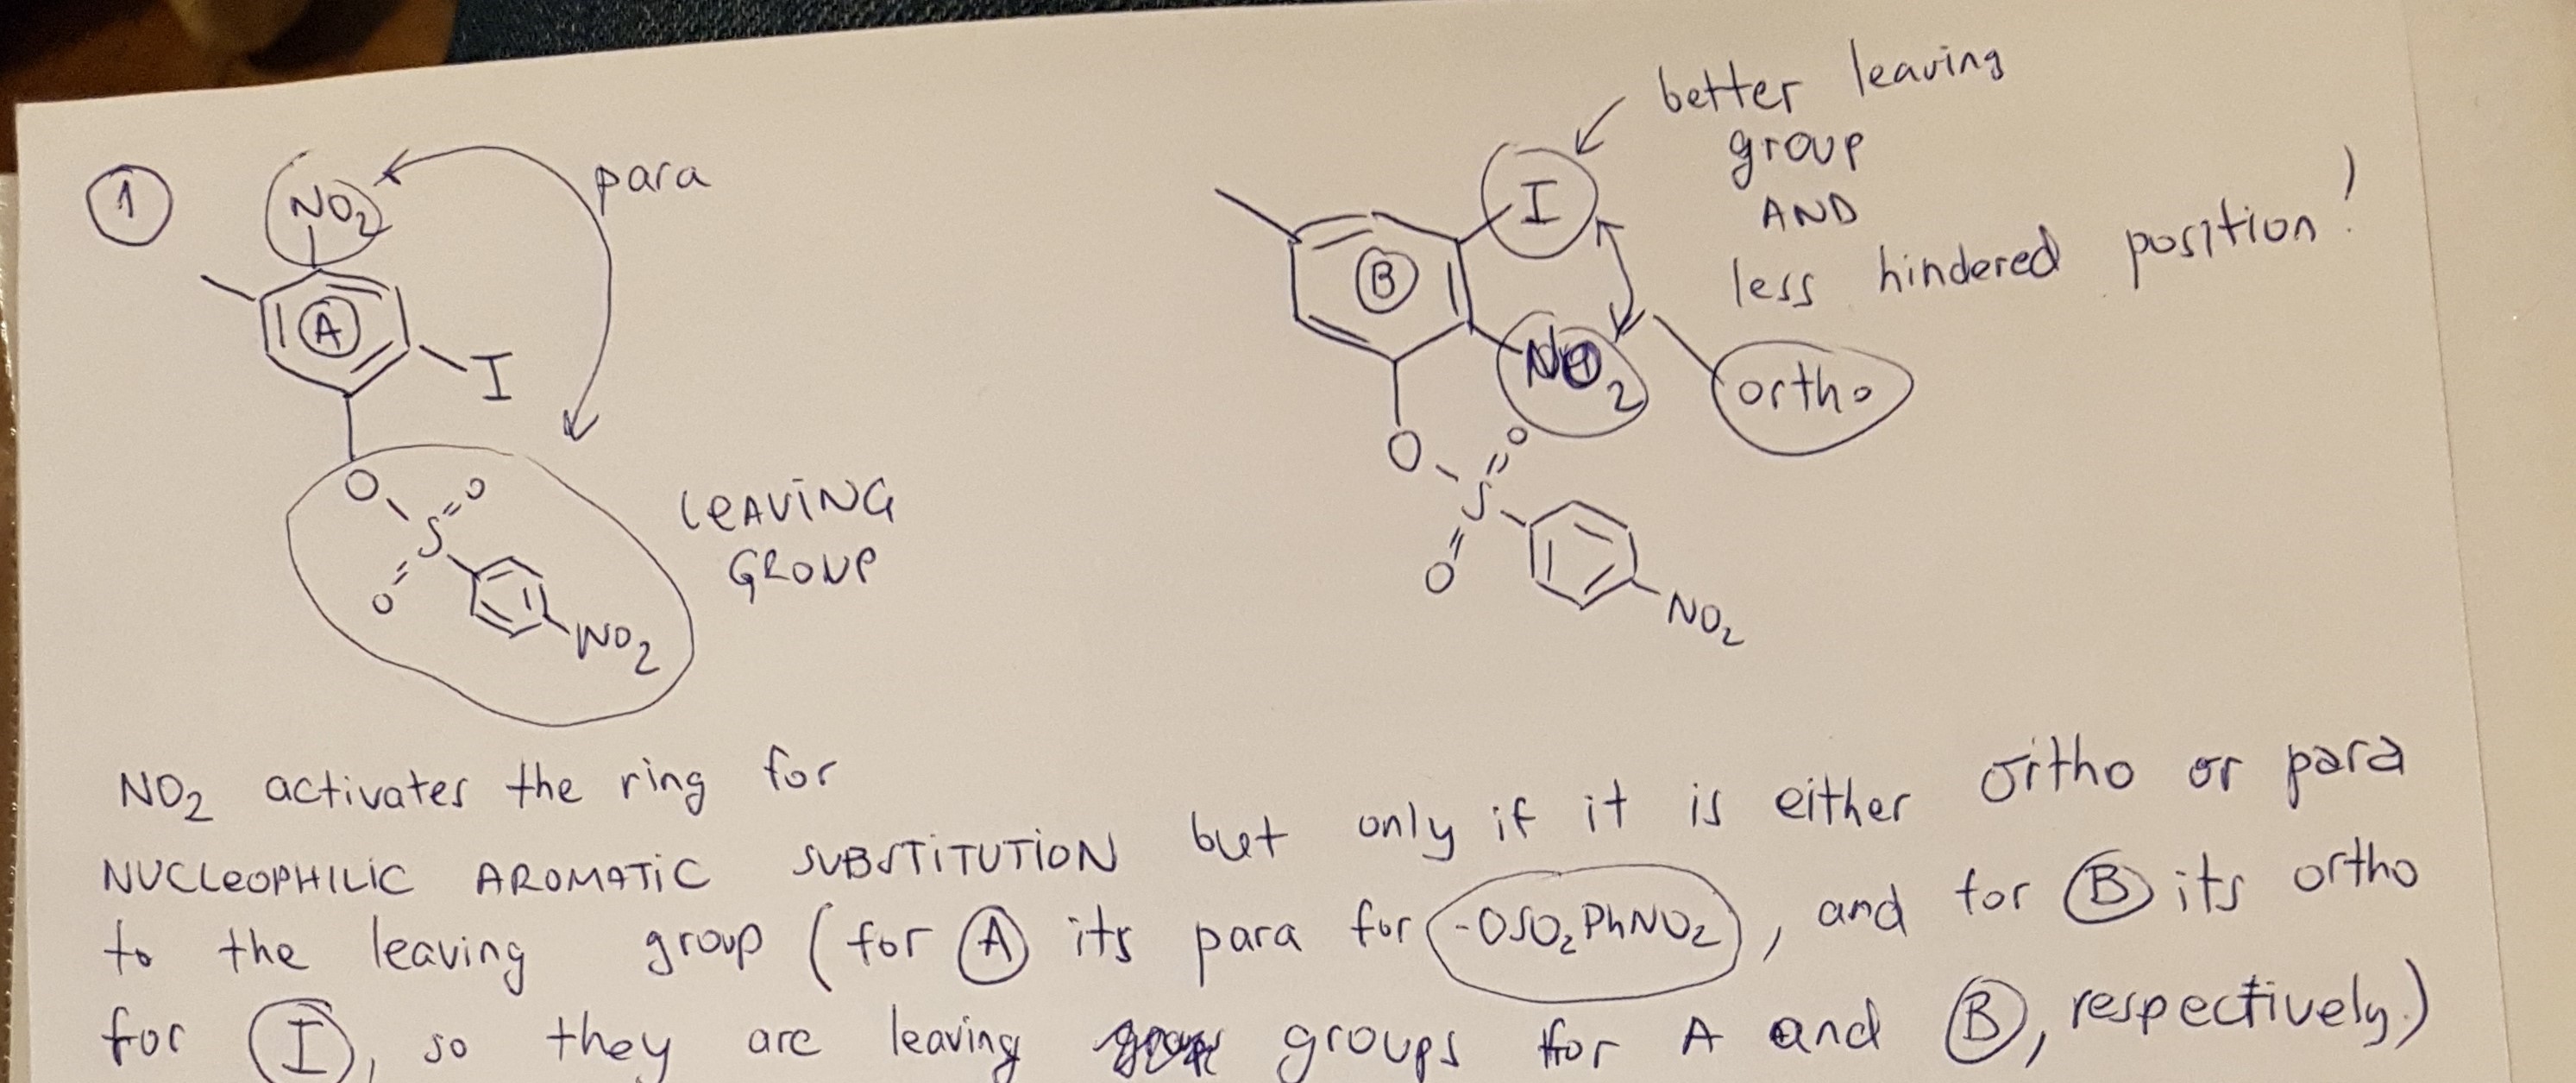 1
NO2
para
A
I
O
O
S
O
NO2
LEAVING
GROUP
better leaving
group
AND
less hindered position!
I
B
NO2
ortho
O
O
S
O
NO2
NO2 activates the ring for
NUCLEOPHILIC AROMATIC SUBSTITUTION but only if it is either ortho or para
to the leaving group (for A its para for -OSO2PhNO2, and for B its ortho
for I, so they are leaving groups for A and B, respectively.)